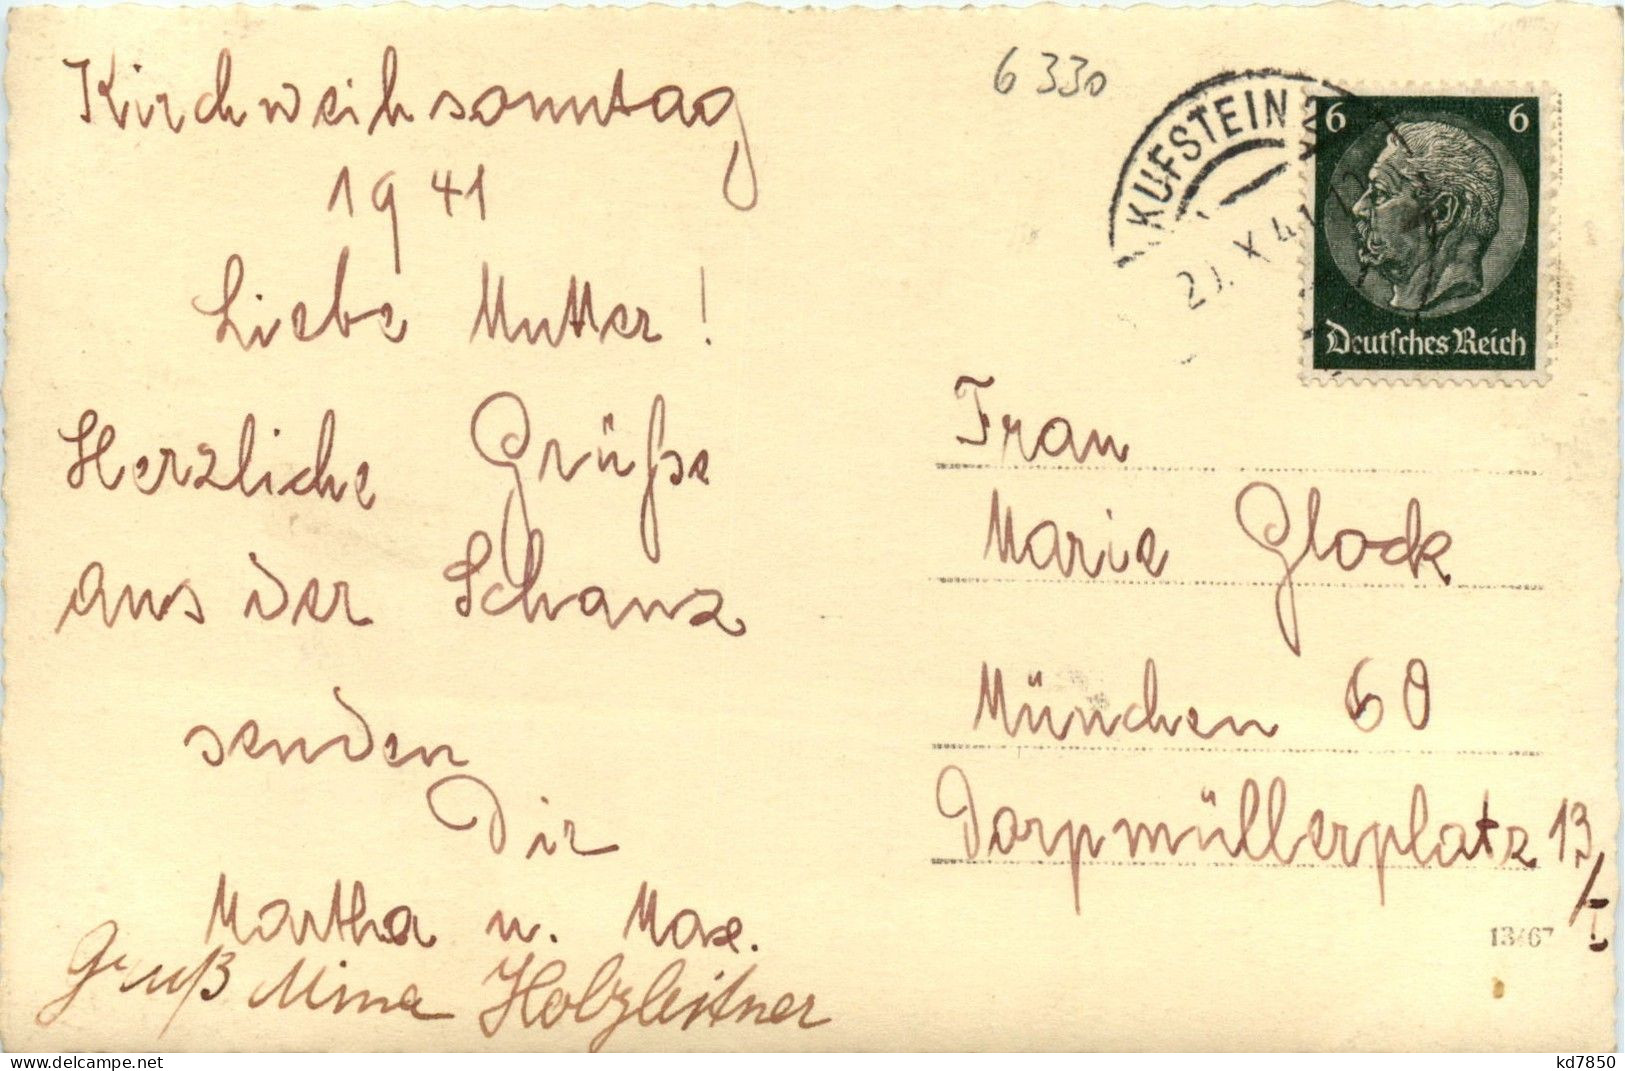 Kirchweihsonntag
1941
Liebe Mutter!
Herzliche Grüße
aus der Schanz
senden
Dir
Martha u. Max.
Gruß Mima Holzleitner
6 330
KUFSTEIN 2
X 41
6 6
Deutsches Reich
Frau
Marie Glock
München 60
Dorpmüllerplatz 13/I
13467
kd7850